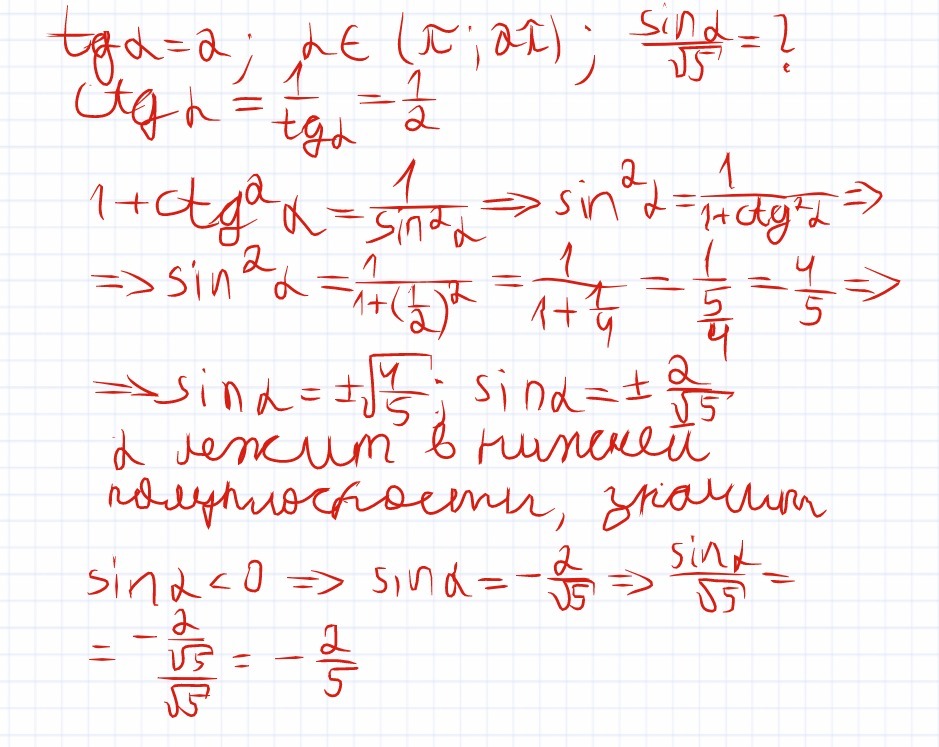 tg α = 2; α ∈ (π; 2π); sin α / √5 = ?
ctg α = 1 / tg α = 1/2
1 + ctg² α = 1 / sin² α ⇒ sin² α = 1 / (1 + ctg² α) ⇒
⇒ sin² α = 1 / (1 + (1/2)²) = 1 / (1 + 1/4) = 1 / (5/4) = 4/5 ⇒
⇒ sin α = ±√(4/5); sin α = ± 2/√5
α лежит в нижней
полуплоскости, значит
sin α < 0 ⇒ sin α = - 2/√5 ⇒ sin α / √5 =
= (- 2/√5) / √5 = - 2/5